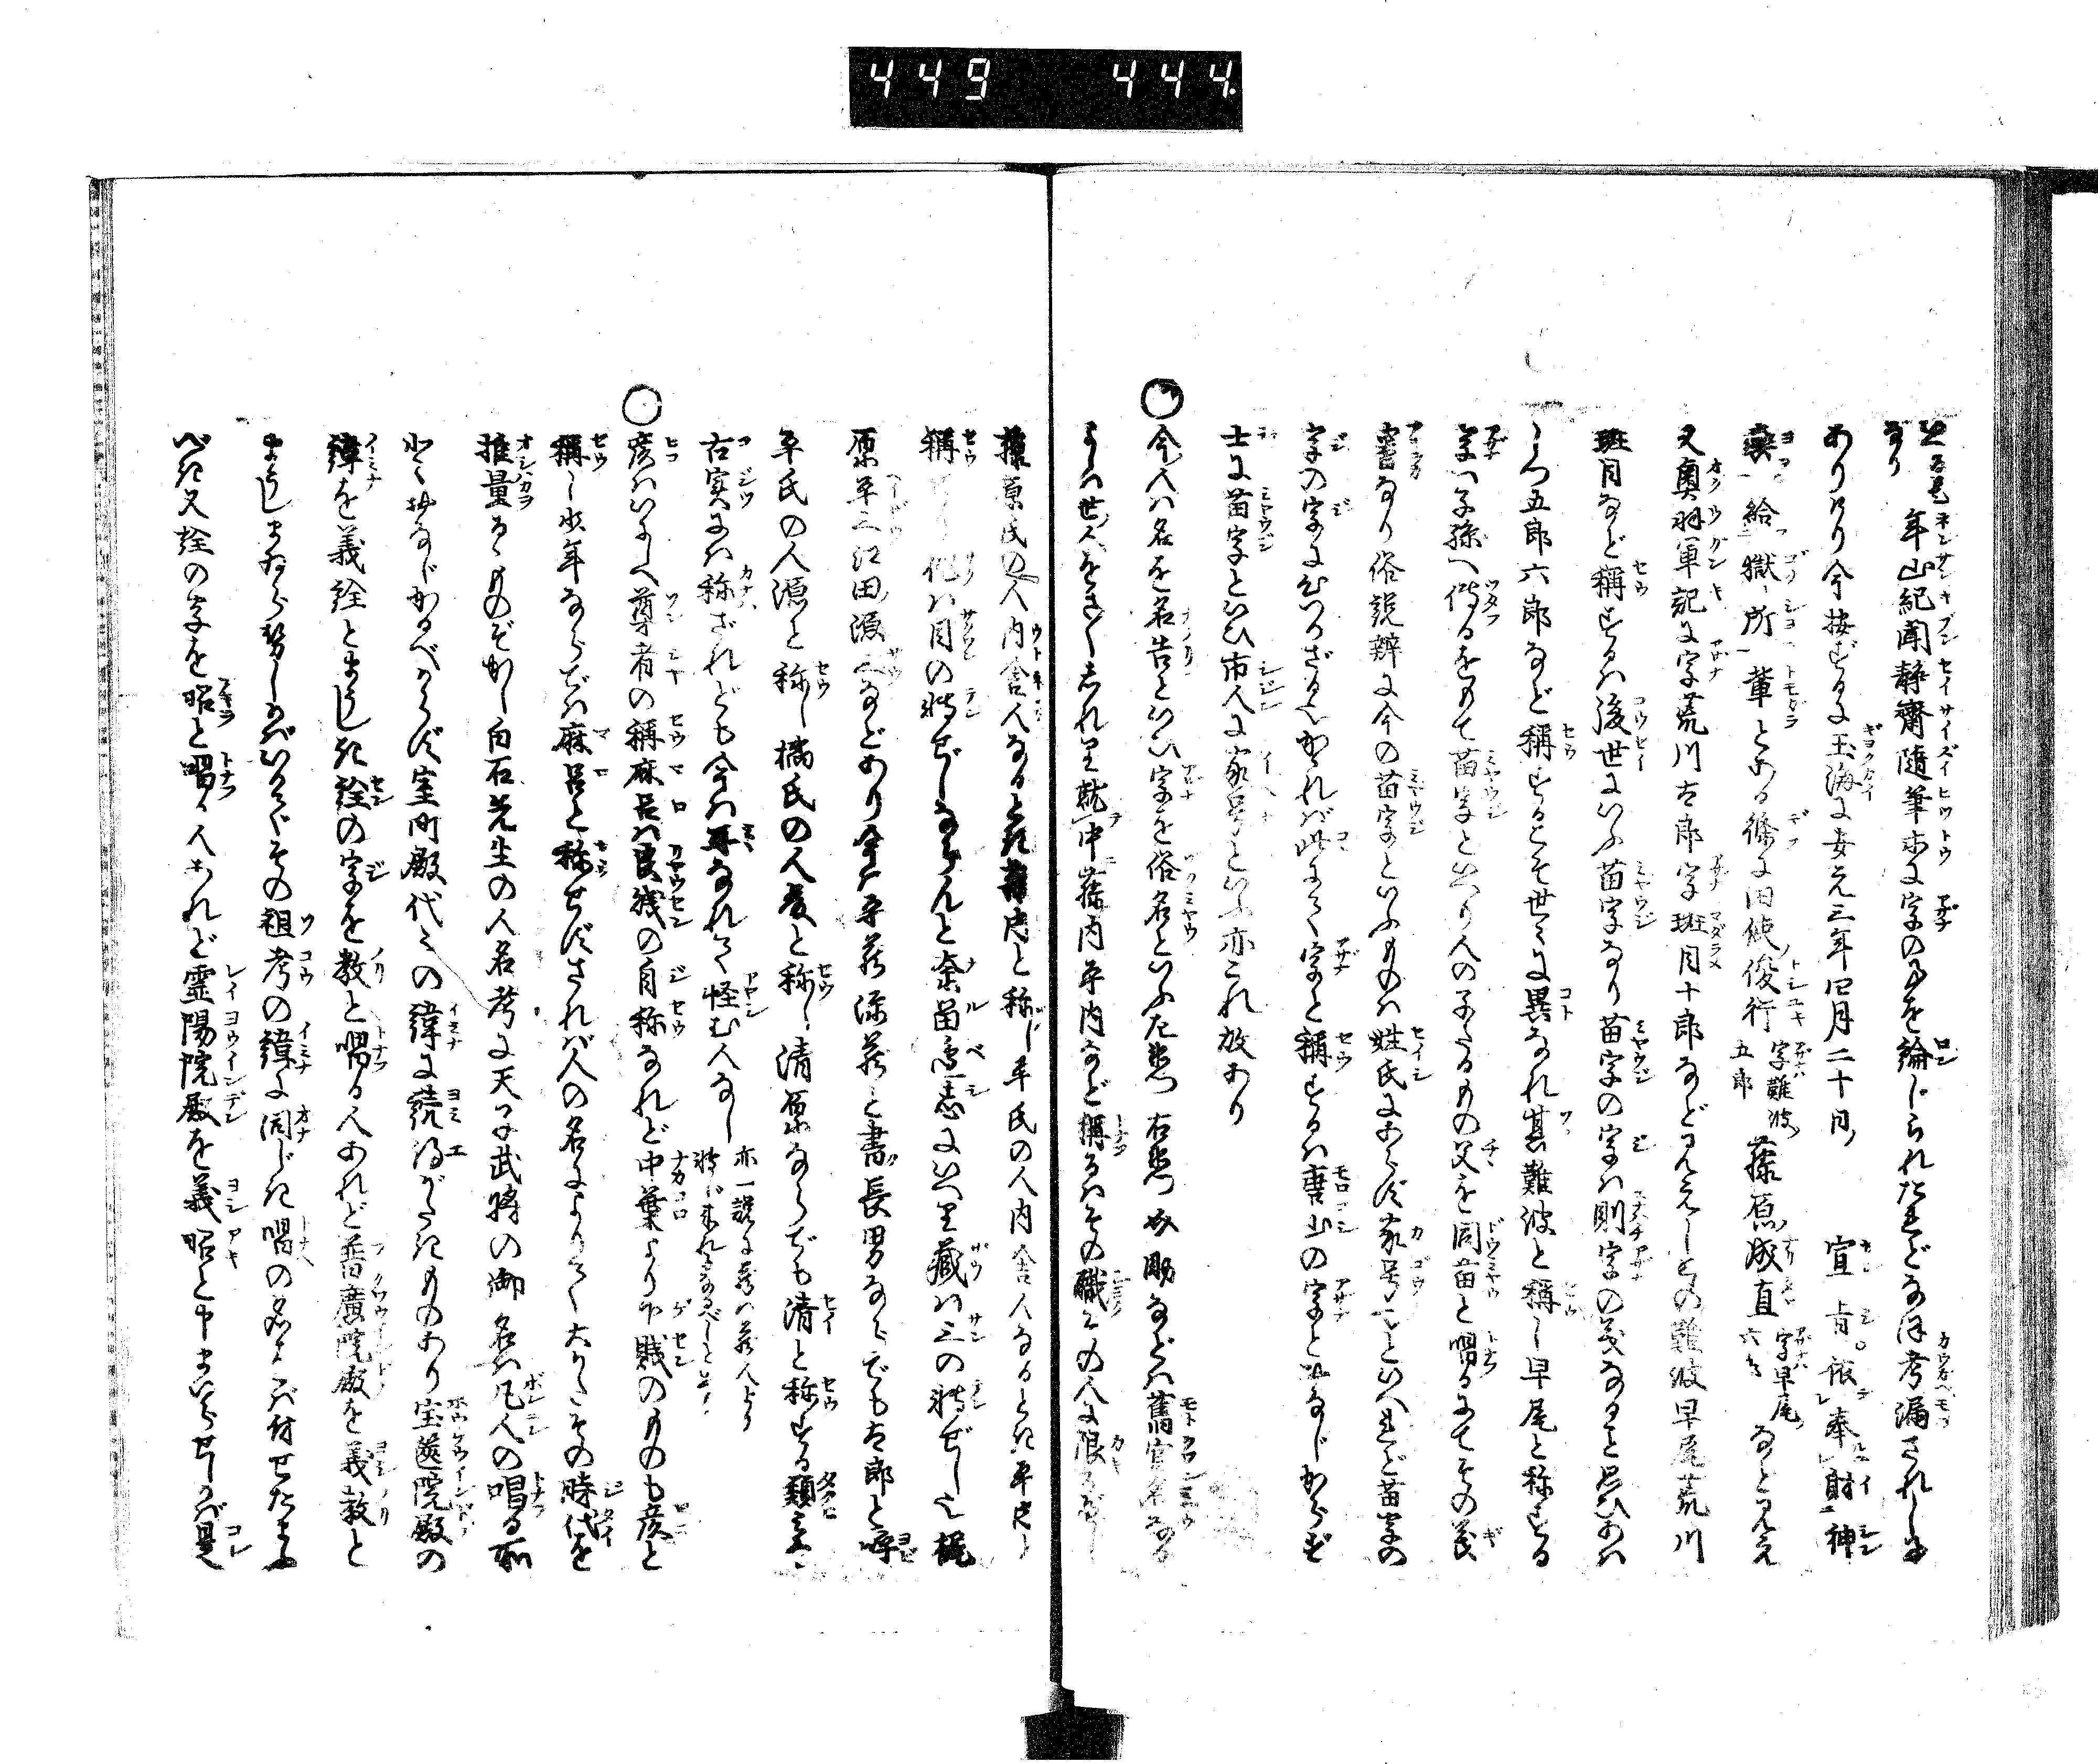 449 444.
年山紀聞静齋隨筆ホに字の事を論じられたれどなほ考漏されし事
ありけり今按ずるに玉海に安元三年四月二十日 宣旨依奉射神
輿給獄所輩とある條に田使俊行字難波五郎藤原成直字早尾六郎などゝ見え
又奥羽軍記に字荒川太郎字班目十郎など見えしその難波早尾荒川
班目など稱するは後世にいふ苗字なり苗字の字は則字の義なると思ひあは
しつ五郎六郎など稱することぞ世々に異なれ其難波と稱し早尾と称する
字は子孫へ傳るをもて苗字といへり人の子たるもの父を同苗と唱るにてその義
審なり俗説辨に今の苗字といふものは姓氏にあらず家号ことといへれど苗字の
字の字に心つかざるかれば此にて字と稱するは唐山の字とおなじからず
士に苗字といひ市人に家号といふ亦これ故あり
○今人は名を名告といひ字を俗名といふ左衛門右衛門丞助などは舊官名なる
よしは世人をさ〳〵しれり就中藤内平内など稱るはその職その人に限るべし
藤原氏の人内舎人なるとき藤内と称し平氏の人内舎人なるとき平内と
稱せり他は目の轉ぜしならんと奈留邊志にいへり藏は三の轉ぜしにて梶
原平三江田源三などあり今は平藏源藏と書長男ならでも太郎と呼
平氏の人源と称し橘氏の人藤と称し清原ならでも清と称する類
古実には称ざれども今は耳なれて怪む人なし亦一説に藏は藏人より轉じ来れるなるべしといへり
○彦はいにしへ尊者の稱麻呂は良賤の自称なれど中葉より下賤のものも彦と
稱し少年ならでは麻呂と称せずされば人の名によりて大かたその時代を
推量るゝものぞかし白石先生の人名考に天子武將の御名は凡人の唱る所
とゝおなじかるべからず室町殿代々の諱に読得がたきものあり宝篋院殿の
諱を義詮とまうしき詮の字を教と唱る人あれど普廣院殿を義教と
まうしまゐらせしかばいかでその祖考の諱に同じき唱の名をば付せたまふ
べき又詮の字を昭と唱る人あれど霊陽院殿を義昭と申まいらせしかば是